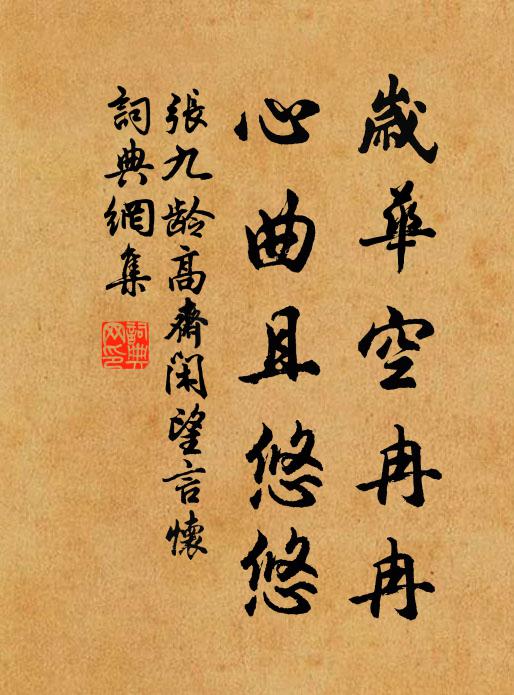 歲華空冉冉
心曲且悠悠
張九齡高齋閑望言懷
詞典網集
詞典网印